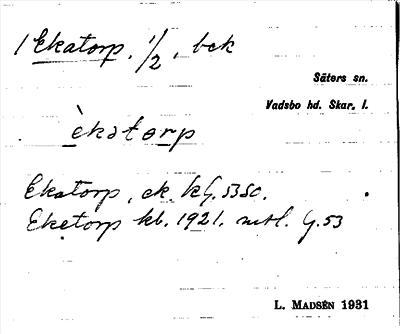 1 Ekatorp, 1/2, bck
Säters sn.
Vadsbo hd. Skar. l.
èkatorp
Ekatorp, ek. kG. 53SO.
Eketorp kb. 1921. mtl. G. 53
L. MADSÉN 1931